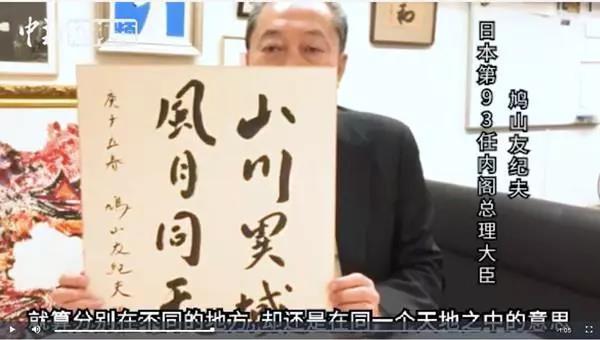 山川異域
風月同天
庚子立春 鳩山友纪夫
和
日本第93任内阁总理大臣
鸠山友纪夫
就算分别在不同的地方,却还是在同一个天地之中的意思
1:05